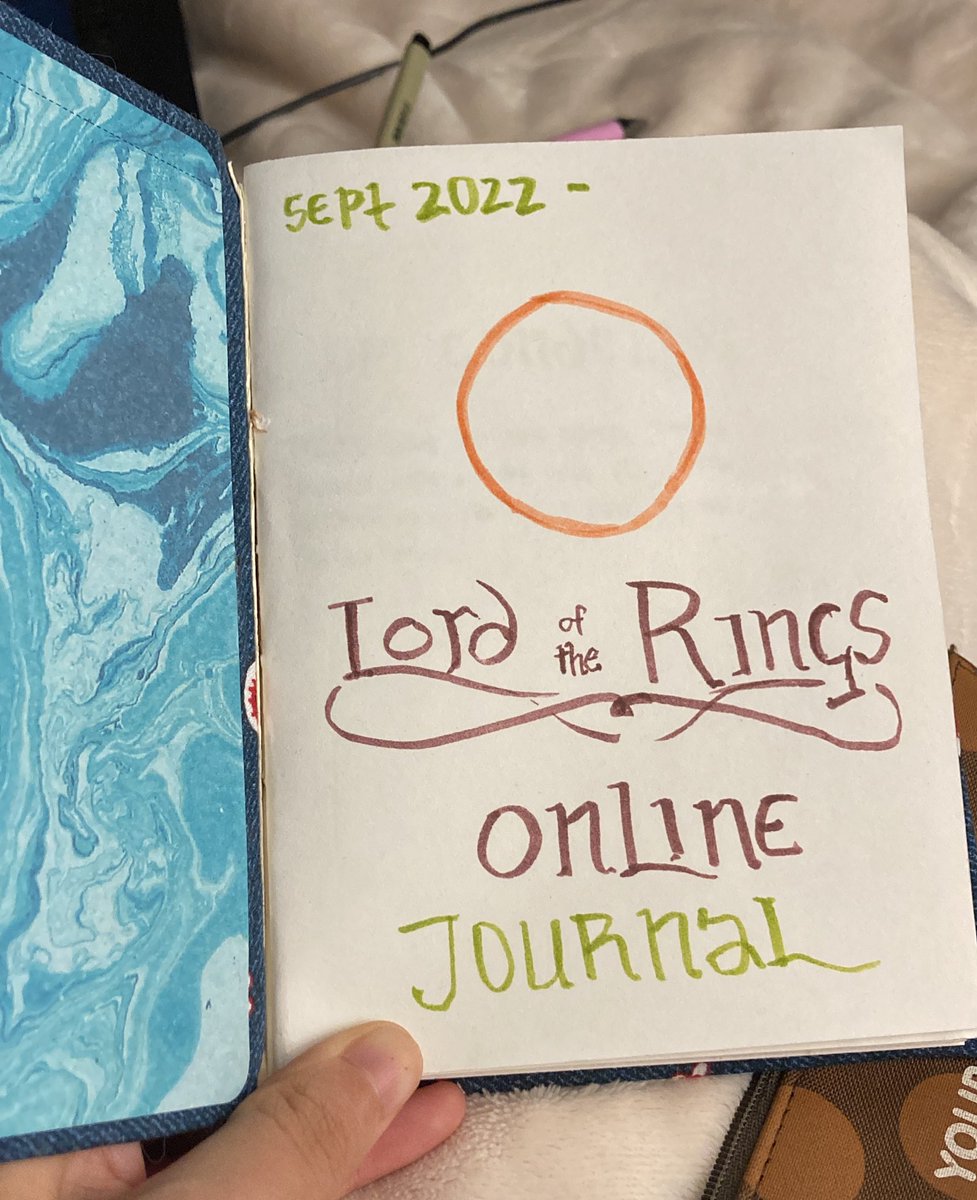 Sept 2022 -
Lord of the Rings
Online
Journal
YOUR